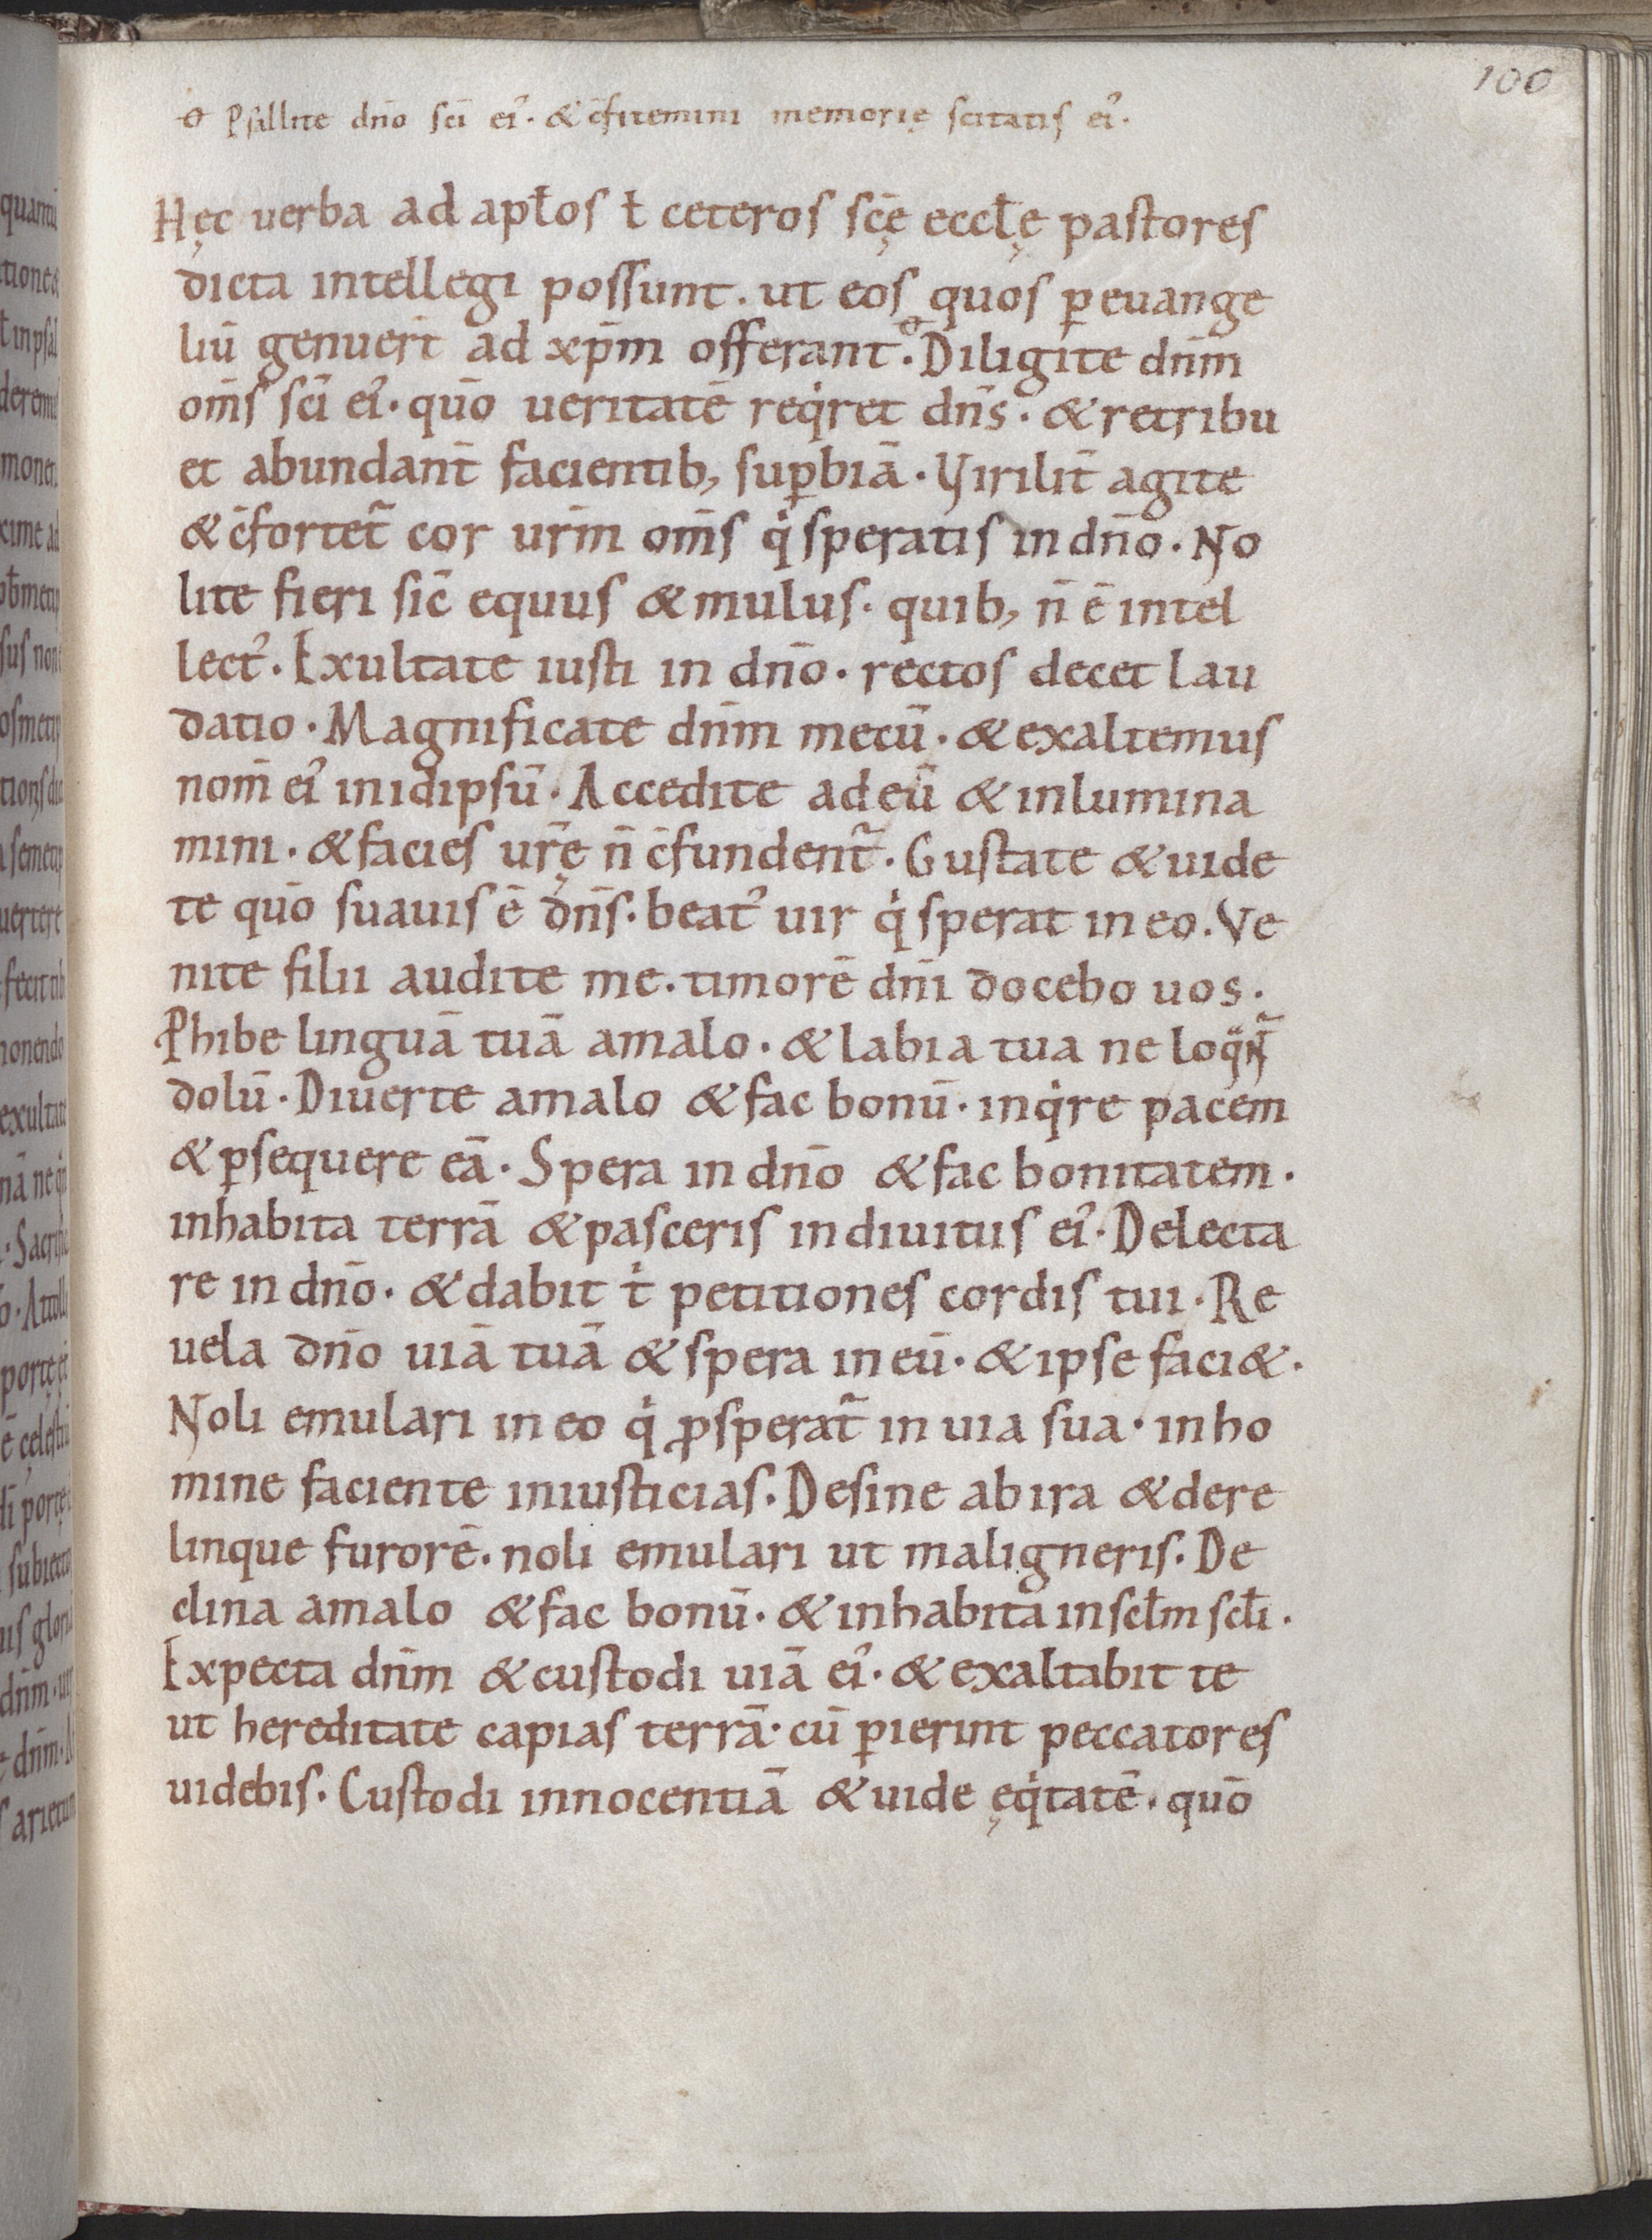 100
Psallite dn̄o sc̄i ei᾽. & c̄fitemini memorię sc̄itatis ei᾽.
Hęc uerba ad apƚos ƚ ceteros sc̄ę eccƚę pastores
dicta intellegi possunt. ut eos quos ꝑ euange
liū genuer̄t ad xp̄m offerant. Diligite dn̄m
om̄s sc̄i ei᾽. quō ueritatē reqͥret dn̄s. & retribu
et abundant̄ facientib, suꝑbiā. Virilit̄ agite
& c̄fortet᷑ cor ur̄m om̄s qͥ speratis in dn̄o. No
lite fieri sic̄ equus & mulus. quib, n̄ ē intel
lect᾽. Exultate iusti in dn̄o. rectos decet lau
datio. Magnificate dn̄m mecū. & exaltemus
nom̄ ei᾽ in idipsū. Accedite ad eū & inlumina
mini. & facies ur̄ę n̄ c̄fundent᷑. Gustate & uide
te quō suauis ē dn̄s. beat᾽ uir qͥ sperat in eo. Ve
nite filii audite me. timorē dn̄i docebo uos.
Ꝓhibe linguā tuā a malo. & labia tua ne loqͣnt᷑
dolū. Diuerte a malo & fac bonū. inqͥre pacem
& ꝑsequere eā. Spera in dn̄o & fac bonitatem.
inhabita terrā & pasceris in diuitiis ei᾽. Delecta
re in dn̄o. & dabit tͥ petitiones cordis tui. Re
uela dn̄o uiā tuā & spera in eū. & ipse faci&.
Noli emulari in eo qͥ ꝓsperat᷑ in uia sua. in ho
mine faciente iniusticias. Desine ab ira & dere
linque furorē. noli emulari ut maligneris. De
clina a malo & fac bonū. & inhabita in scƚm scƚi.
Expecta dn̄m & custodi uiā ei᾽. & exaltabit te
ut hereditate capias terrā. cū ꝑierint peccatores
uidebis. Custodi innocentiā & uide ęqͥtatē. quō